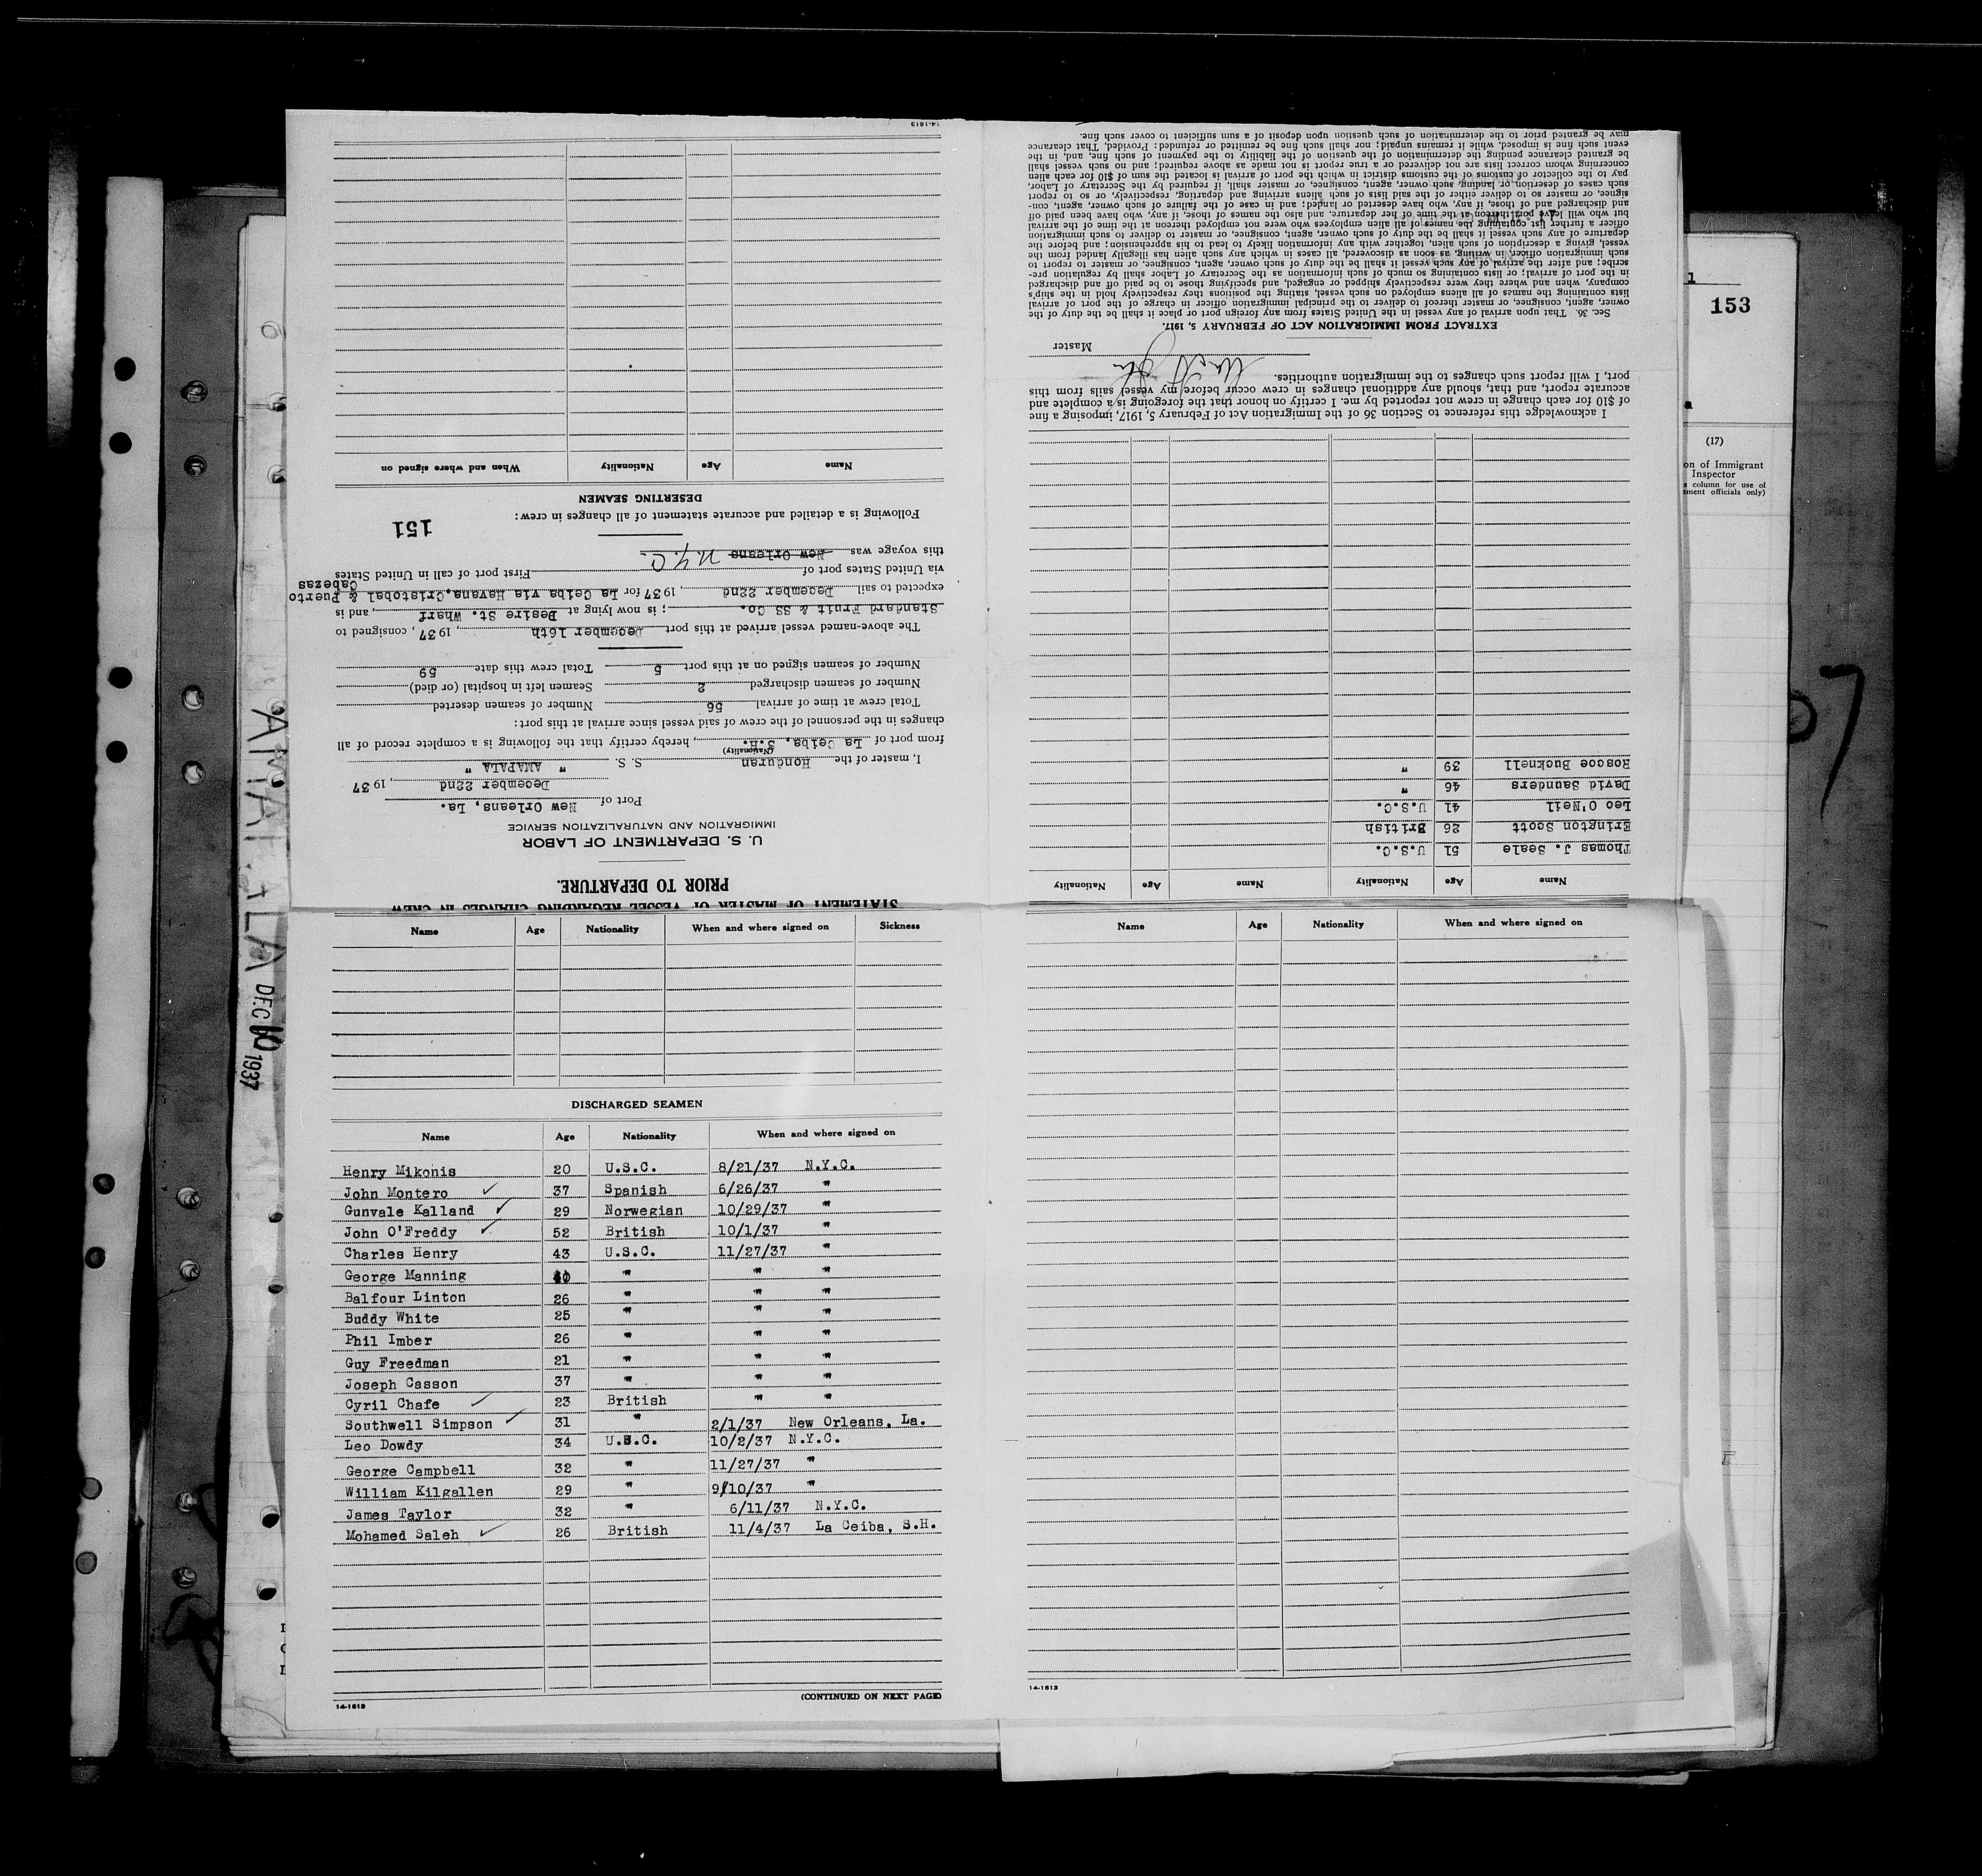 STATEMENT OF MASTER OF VESSEL REGARDING CHANGES IN CREW
PRIOR TO DEPARTURE.
U. S. DEPARTMENT OF LABOR
IMMIGRATION AND NATURALIZATION SERVICE
Port of New Orleans, La.
December 22nd, 1937
I, master of the Honduran S. S. " AMAPALA "
(Nationality)
from port of La Ceiba, S.H., hereby certify that the following is a complete record of all
changes in the personnel of the crew of said vessel since arrival at this port:
Total crew at time of arrival 56 Number of seamen deserted
Number of seamen discharged 2 Seamen left in hospital (or died)
Number of seamen signed on at this port 5 Total crew this date 59
The above-named vessel arrived at this port December 16th, 1937, consigned to
Standard Fruit & SS Co. ; is now lying at Desire St. Wharf, and is
expected to sail December 22nd, 1937 for La Ceiba via Havana.Cristobal & Puerto
Cabezas
via United States port of First port of call in United States
this voyage was New Orleans N.Y.C.
Following is a detailed and accurate statement of all changes in crew:
151
DESERTING SEAMEN
Name Age Nationality When and where signed on
14-1613
Name Age Nationality Name Age Nationality
Thomas J. Seale 51 U.S.C.
Erington Scott 26 British
Leo O'Neil 41 U.S.C.
David Saunders 46 "
Roscoe Bucknell 39 "
I acknowledge this reference to Section 36 of the Immigration Act of February 5, 1917, imposing a fine
of $10 for each change in crew not reported by me. I certify on honor that the foregoing is a complete and
accurate report, and that, should any additional changes in crew occur before my vessel sails from this
port, I will report such changes to the immigration authorities.
Master
EXTRACT FROM IMMIGRATION ACT OF FEBRUARY 5, 1917.
Sec. 36. That upon arrival of any vessel in the United States from any foreign port or place it shall be the duty of the
owner, agent, consignee, or master thereof to deliver to the principal immigration officer in charge of the port of arrival
lists containing the names of all aliens employed on such vessel, stating the positions they respectively hold in the ship's
company, when and where they were respectively shipped or engaged, and specifying those to be paid off and discharged
in the port of arrival; or lists containing so much of such information as the Secretary of Labor shall by regulation pre-
scribe; and after the arrival of any such vessel it shall be the duty of such owner, agent, consignee, or master to report to
such immigration officer, in writing, as soon as discovered, all cases in which any such alien has illegally landed from the
vessel, giving a description of such alien, together with any information likely to lead to his apprehension; and before the
departure of any such vessel it shall be the duty of such owner, agent, consignee, or master to deliver to such immigration
officer a further list containing the names of all alien employees who were not employed thereon at the time of the arrival
but who will leave port thereon at the time of her departure, and also the names of those, if any, who have been paid off
and discharged and of those, if any, who have deserted or landed; and in case of the failure of such owner, agent, con-
signee, or master so to deliver either of the said lists of such aliens arriving and departing, respectively, or so to report
such cases of desertion or landing, such owner, agent, consignee, or master shall, if required by the Secretary of Labor,
pay to the collector of customs of the customs district in which the port of arrival is located the sum of $10 for each alien
concerning whom correct lists are not delivered or a true report is not made as above required; and no such vessel shall
be granted clearance pending the determination of the question of the liability to the payment of such fine, and, in the
event such fine is imposed, while it remains unpaid; nor shall such fine be remitted or refunded: Provided, That clearance
may be granted prior to the determination of such question upon deposit of a sum sufficient to cover such fine.
Name Age Nationality When and where signed on Sickness
DISCHARGED SEAMEN
Name Age Nationality When and where signed on
Henry Mikonis 20 U.S.C. 8/21/37 N.Y.C.
John Montero ✓ 37 Spanish 6/26/37 "
Gunvale Kalland ✓ 29 Norwegian 10/29/37 "
John O'Freddy ✓ 52 British 10/1/37 "
Charles Henry 43 U.S.C. 11/27/37 "
George Manning " " "
Balfour Linton 26 " " "
Buddy White 25 " " "
Phil Imber 26 " " "
Guy Freedman 21 " " "
Joseph Casson 37 " " "
Cyril Chafe ✓ 23 British " "
Southwell Simpson ✓ 31 " 2/1/37 New Orleans, La.
Leo Dowdy 34 U.S.C. 10/2/37 N.Y.C.
George Campbell 32 " 11/27/37 "
William Kilgallen 29 " 9/10/37 "
James Taylor 32 " 6/11/37 N.Y.C.
Mohamed Saleh ✓ 26 British 11/4/37 La Ceiba, S.H.
(CONTINUED ON NEXT PAGE)
14-1613
Name Age Nationality When and where signed on
14-1613
AMAPALA DEC 16 1937
153
(17)
on of Immigrant
Inspector
s column for use of
nment officials only)
07